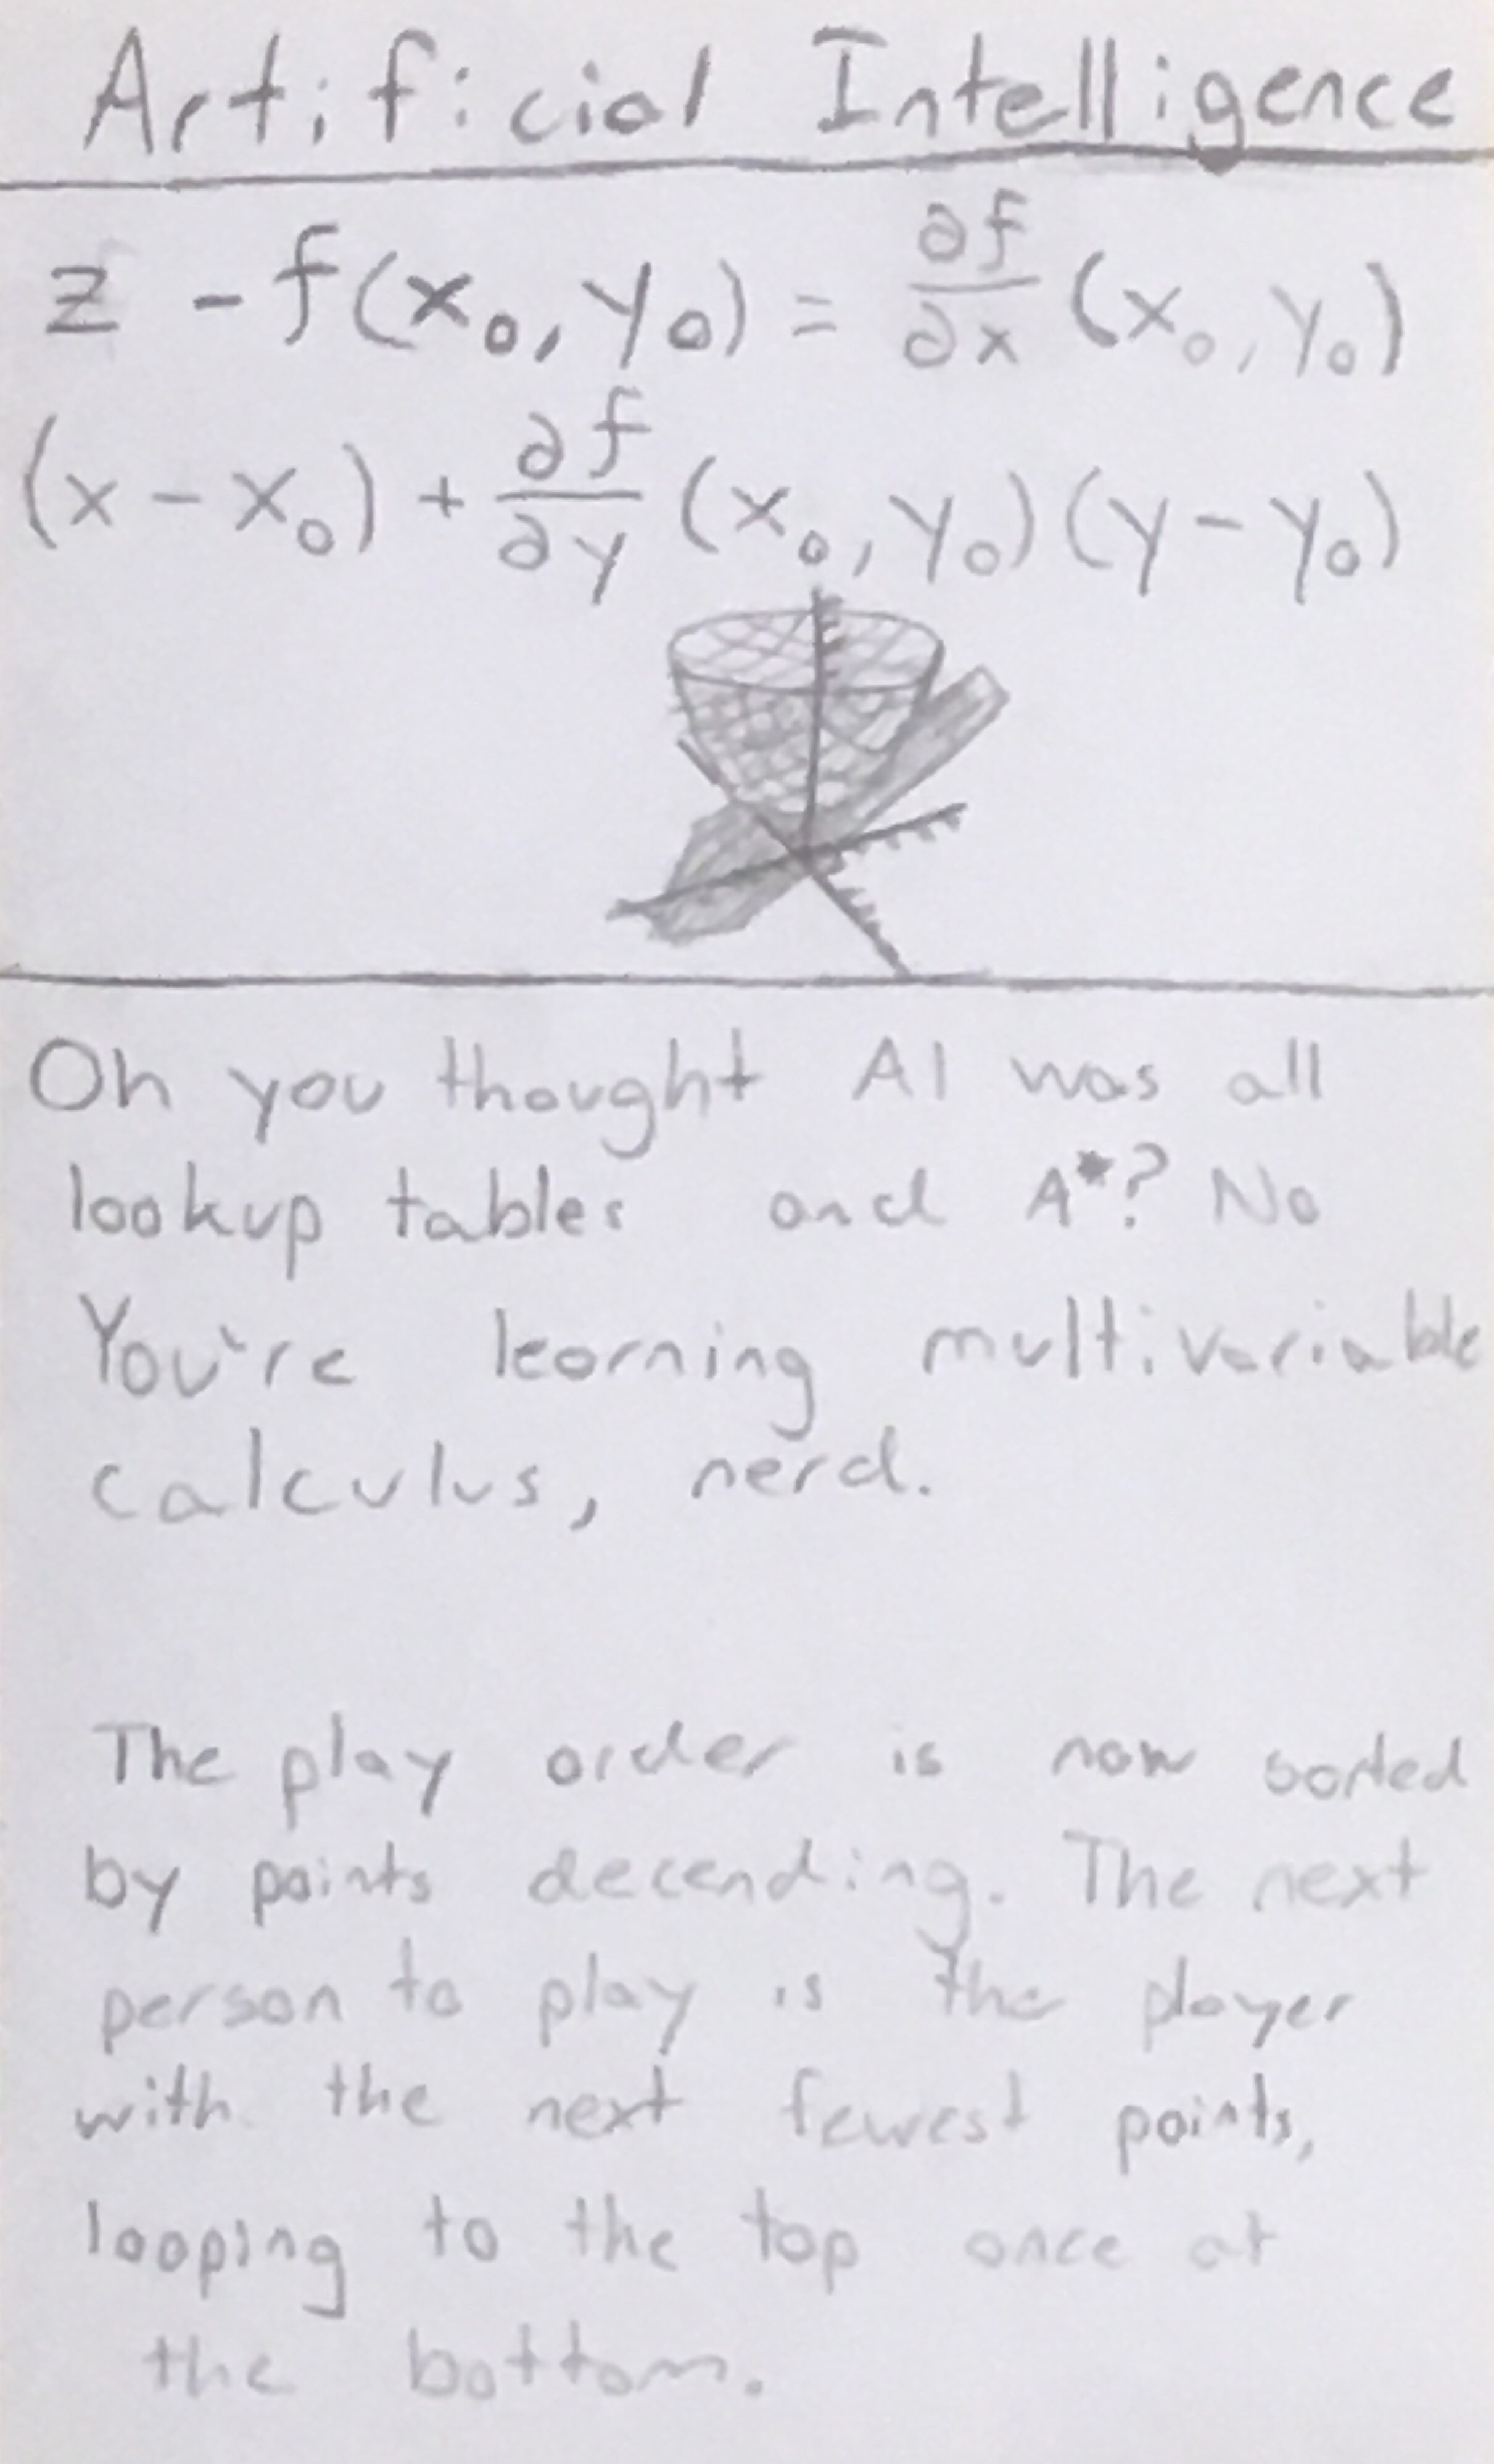 Artificial Intelligence
z - f(x₀, y₀) = ∂f/∂x (x₀, y₀)
(x - x₀) + ∂f/∂y (x₀, y₀)(y - y₀)
Oh you thought AI was all
lookup tables and A*? No
You're learning multivariable
calculus, nerd.
The play order is now sorted
by points decending. The next
person to play is the player
with the next fewest points,
looping to the top once at
the bottom.